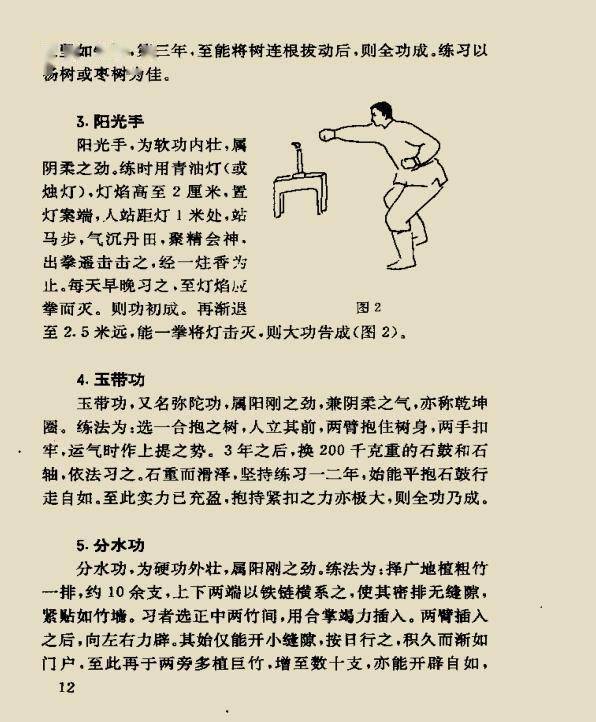 三年,至能将树连根拔动后,则全功成。练习以
杨树或枣树为佳。
3. 阳光手
阳光手,为软功内壮,属
阴柔之劲。练时用青油灯(或
烛灯),灯焰高至 2 厘米,置
灯案端,人站距灯 1 米处,站
马步,气沉丹田,聚精会神,
出拳遥击击之,经一炷香为
止。每天早晚习之,至灯焰应
拳而灭。则功初成。再渐退
图 2
至 2.5 米远,能一拳将灯击灭,则大功告成(图 2)。
4. 玉带功
玉带功,又名弥陀功,属阳刚之劲,兼阴柔之气,亦称乾坤
圈。练法为:选一合抱之树,人立其前,两臂抱住树身,两手扣
牢,运气时作上提之势。3 年之后,换 200 千克重的石鼓和石
轴,依法习之。石重而滑泽,坚持练习一二年,始能平抱石鼓行
走自如。至此实力已充盈,抱持紧扣之力亦极大,则全功乃成。
5. 分水功
分水功,为硬功外壮,属阳刚之劲。练法为:择广地植粗竹
一排,约 10 余支,上下两端以铁链横系之,使其密排无缝隙,
紧贴如竹墙。习者选正中两竹间,用合掌竭力插入。两臂插入
之后,向左右力辟。其始仅能开小缝隙,按日行之,积久而渐如
门户,至此再于两旁多植巨竹,增至数十支,亦能开辟自如,
12